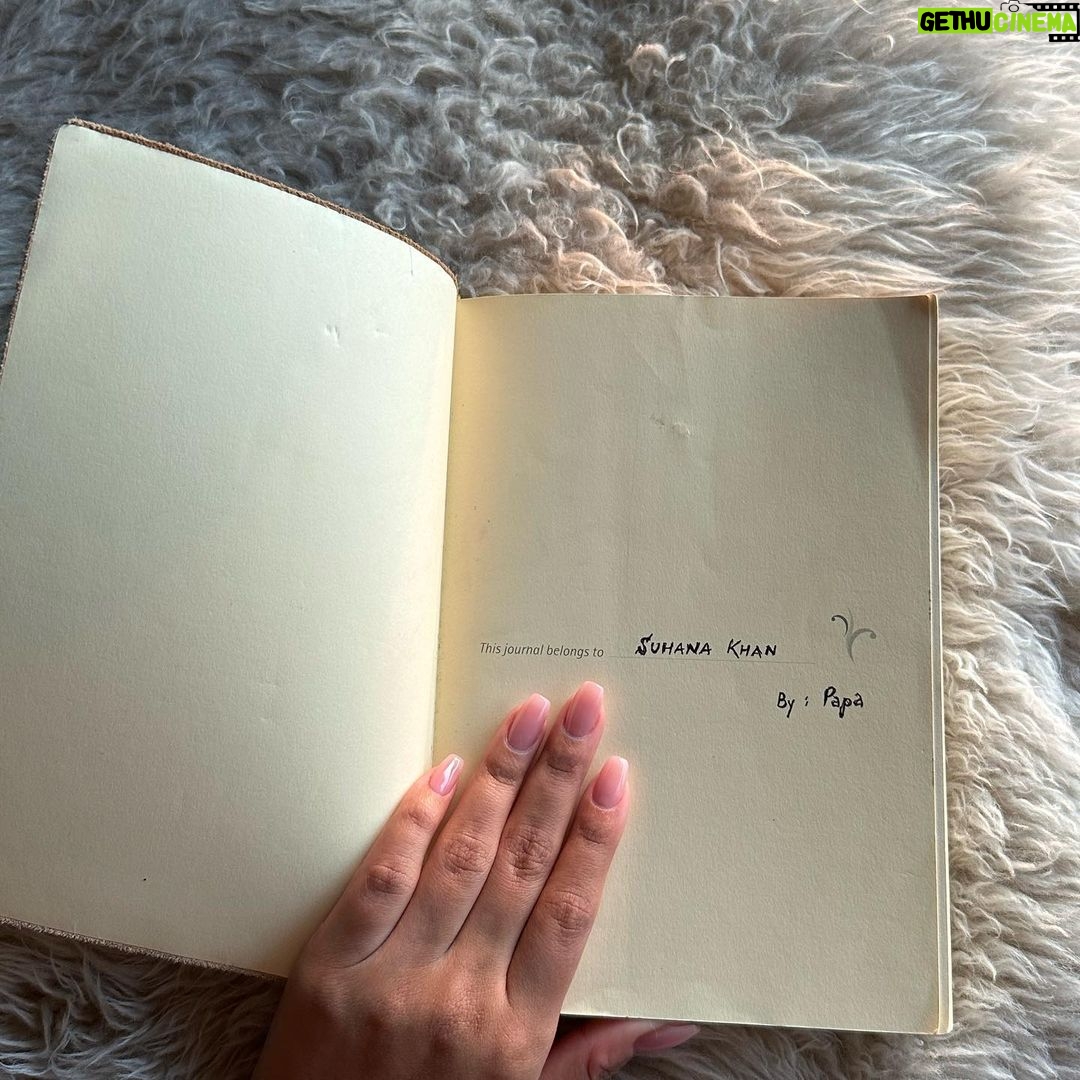 GETHU CINEMA
This journal belongs to SUHANA KHAN
By : Papa